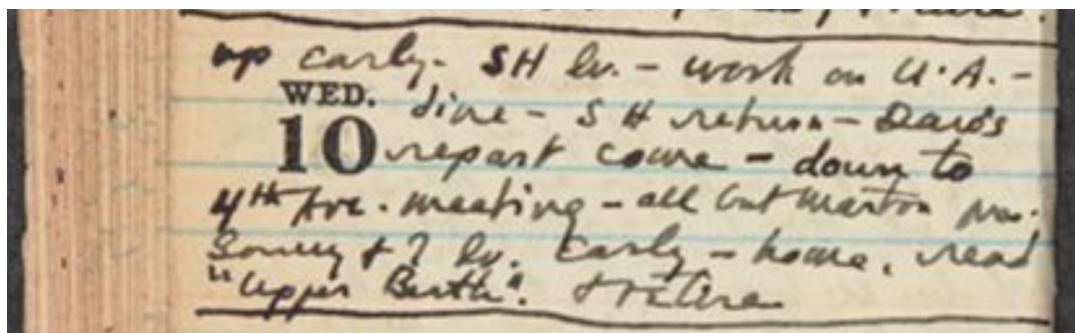 up early - SH lv. - work on U.A. -
WED. dine - SH return - Davis
10 report come - down to
4th Ave. meeting - all but Morton pres.
Sonny + I lv. early - home, read
"Upper Berth". + retire